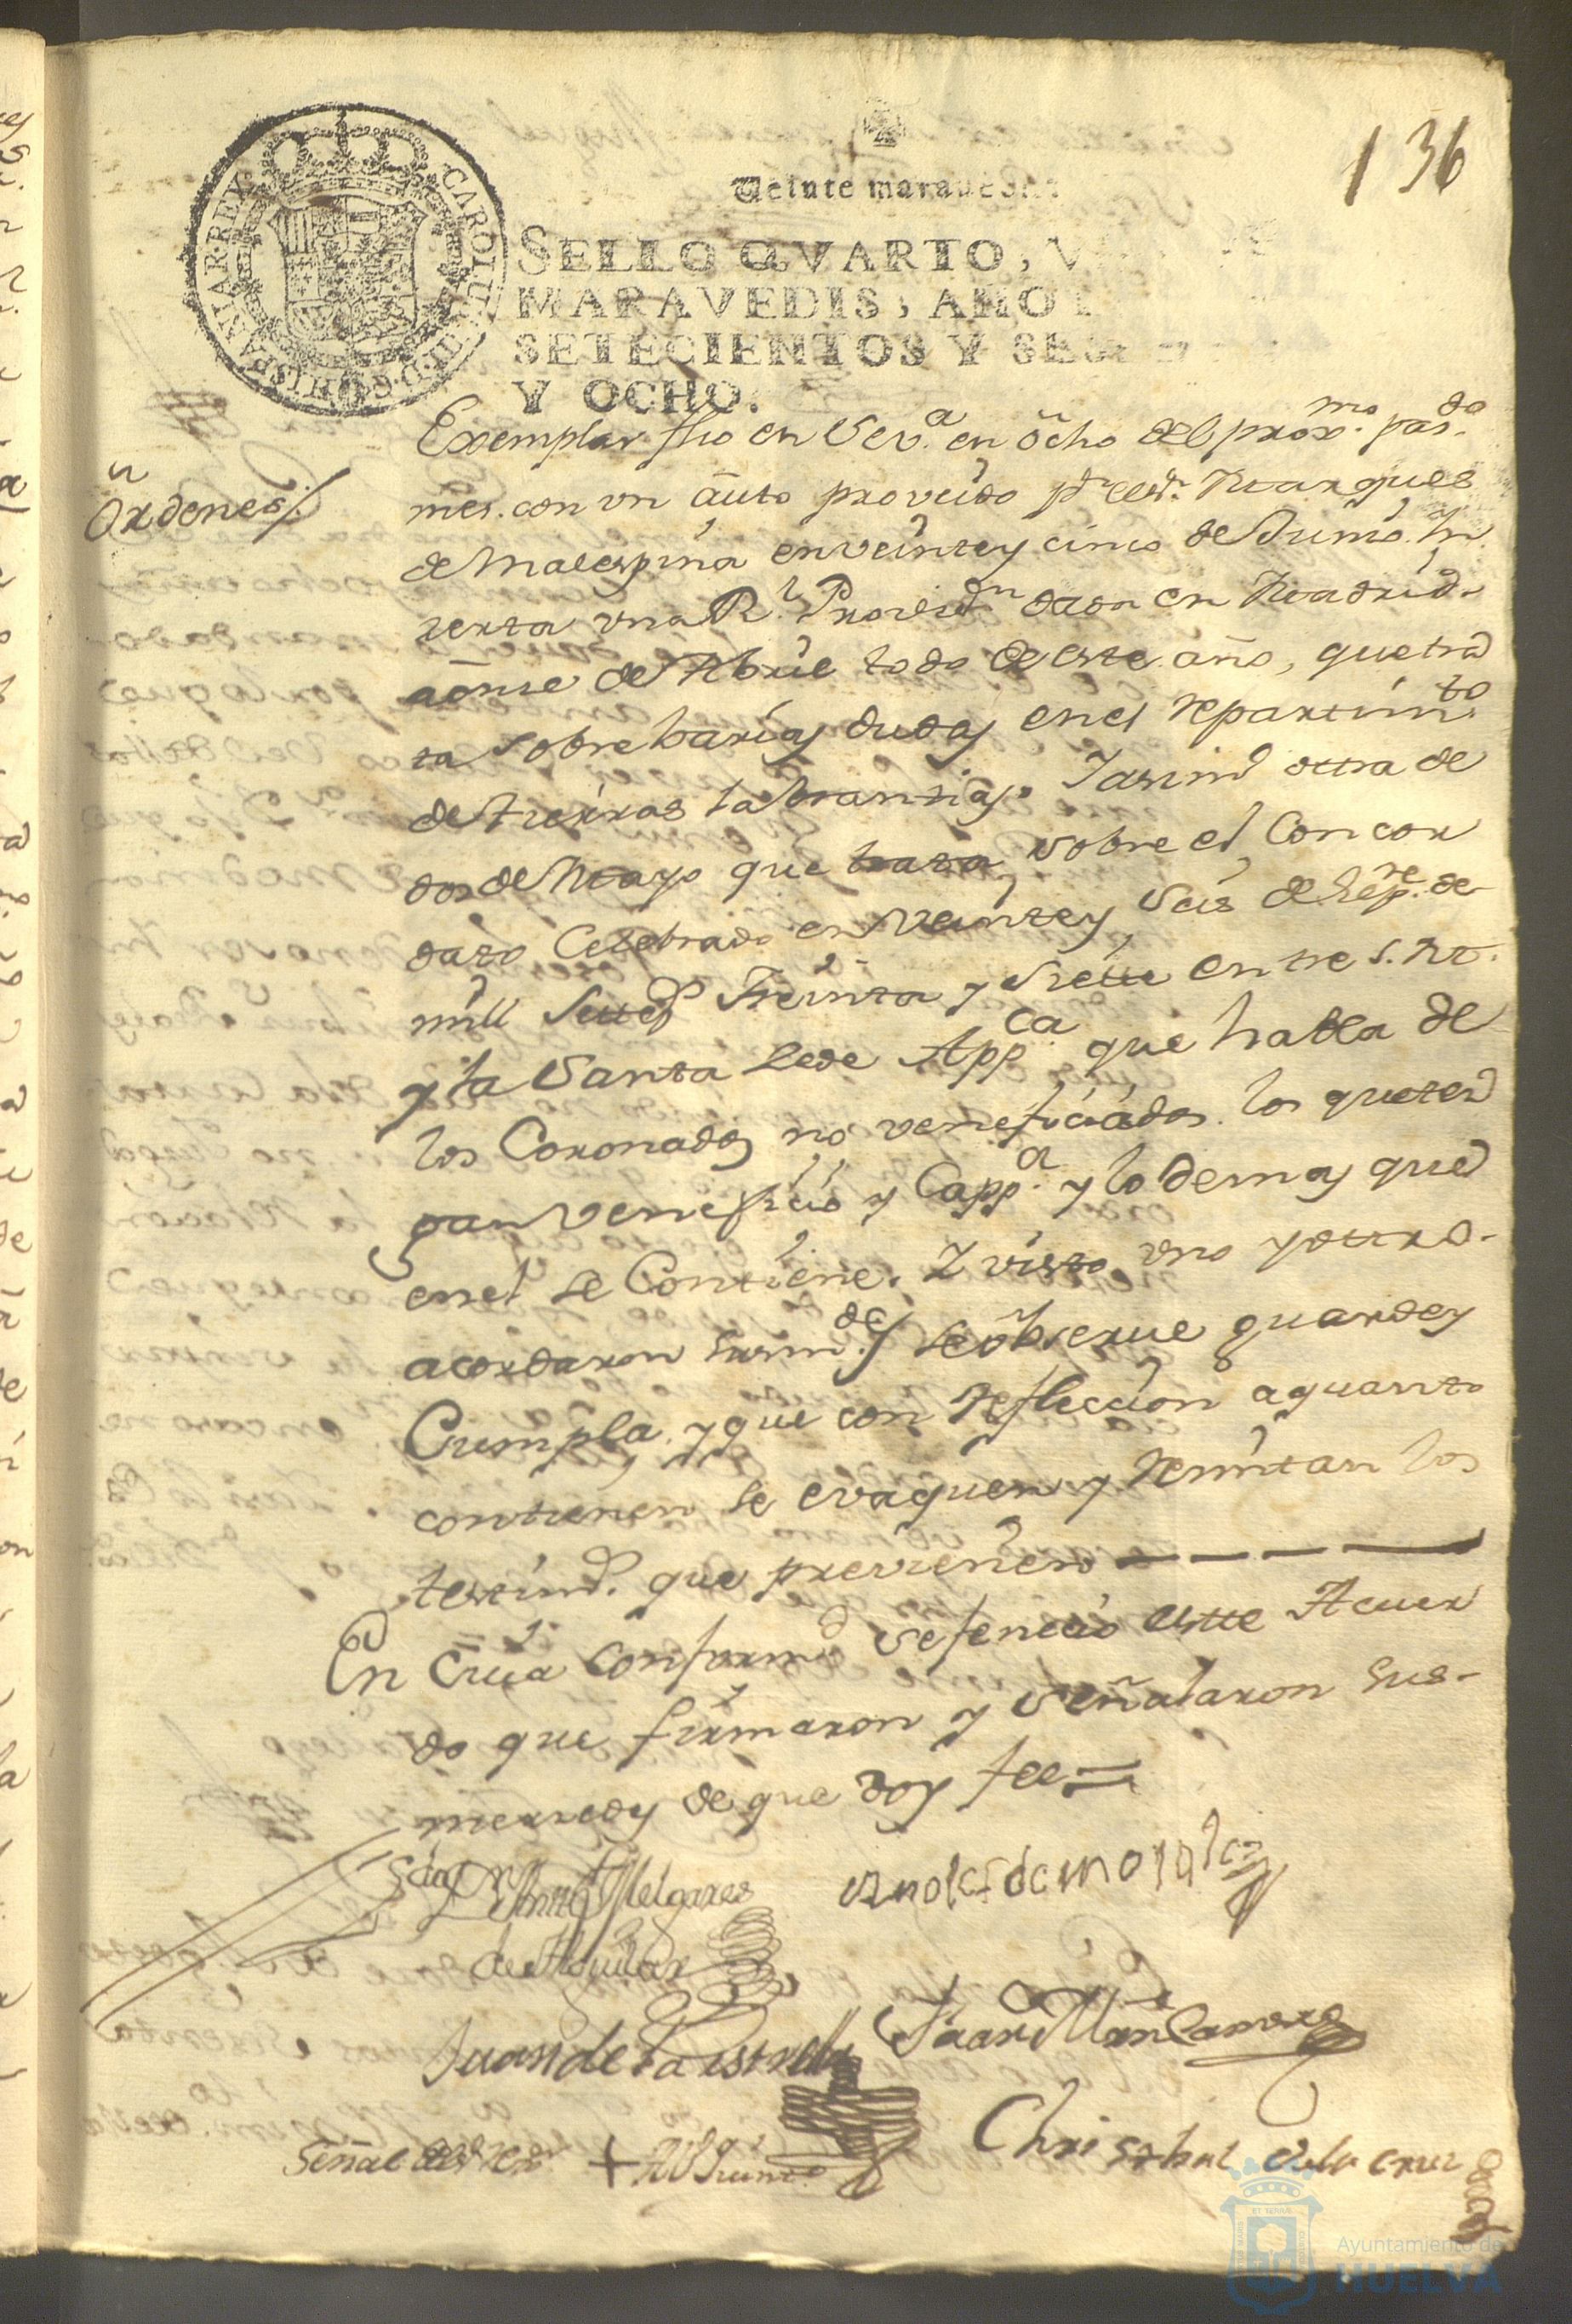 136
Veinte maravedis.
SELLO QVARTO, V
MARAVEDIS, AÑO
SETECIENTOS Y SES
Y OCHO.
CAROLUS III D G HISPANIAR REX
Ordenes
Exemplar fho en Seva. en ôcho del proxmo. pasdo.
mes. con vn âuto proveido pr el sr. Marques
de Malespina en veinte y cinco de Junio. in
serta vna Rl. Provisn. dada en Madrid
a ônse de Abril todo de este año, que tra
ta sobre barias dudas en el repartimto.
de tierras labrantias. Y asimo. ottra de
dos de Mayo que trata sobre el Concor
dato Celebrado en veinte y seis de Sepre. de
mill settesos. Treinta y siette entre S. M.
y la Santa Sede Appca. que habla de
los Coronados no veneficiados. los que ten
gan veneficio y Cappa. y lo demas que
en el se Contiene. Y visto vno y ottro
acordaron sus mdes. se ôbserue guarde y
Cumpla. y que con reflección a quanto
contienen se evaquen y remitan los
testimos. que previenen
En Cuia conformd. se feneció este Acuer
do que firmaron y señalaron sus
mercedes de que doy fee
Melgares
de Aguilar
Juan de la
Juan
Señal del + Rdor.
Christobal de la Cruz
Ayuntamiento de
HUELVA